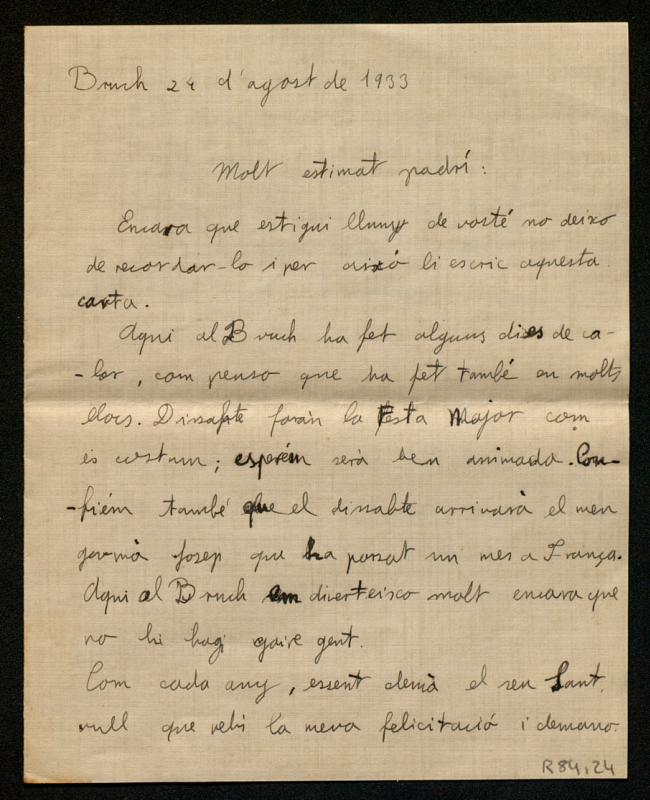 Bruch 24 d'agost de 1933
Molt estimat padrí:
Encara que estigui lluny de vosté no deixo
de recordar-lo i per aixó li escric aquesta
carta.
Aqui al Bruch ha fet alguns dies de ca-
-lor, com penso que ha fet també en molts
llocs. Dissapte faràn la Festa Major com
és costum; esperém serà ben animada. Con-
-fiém també que el dissabte arrivarà el meu
germà Josep que ha passat un mes a França.
Aqui al Bruch em diverteisco molt encara que
no hi hagi gaire gent.
Com cada any, essent demà el seu Sant,
vull que rebi la meva felicitació i demano
R84,24